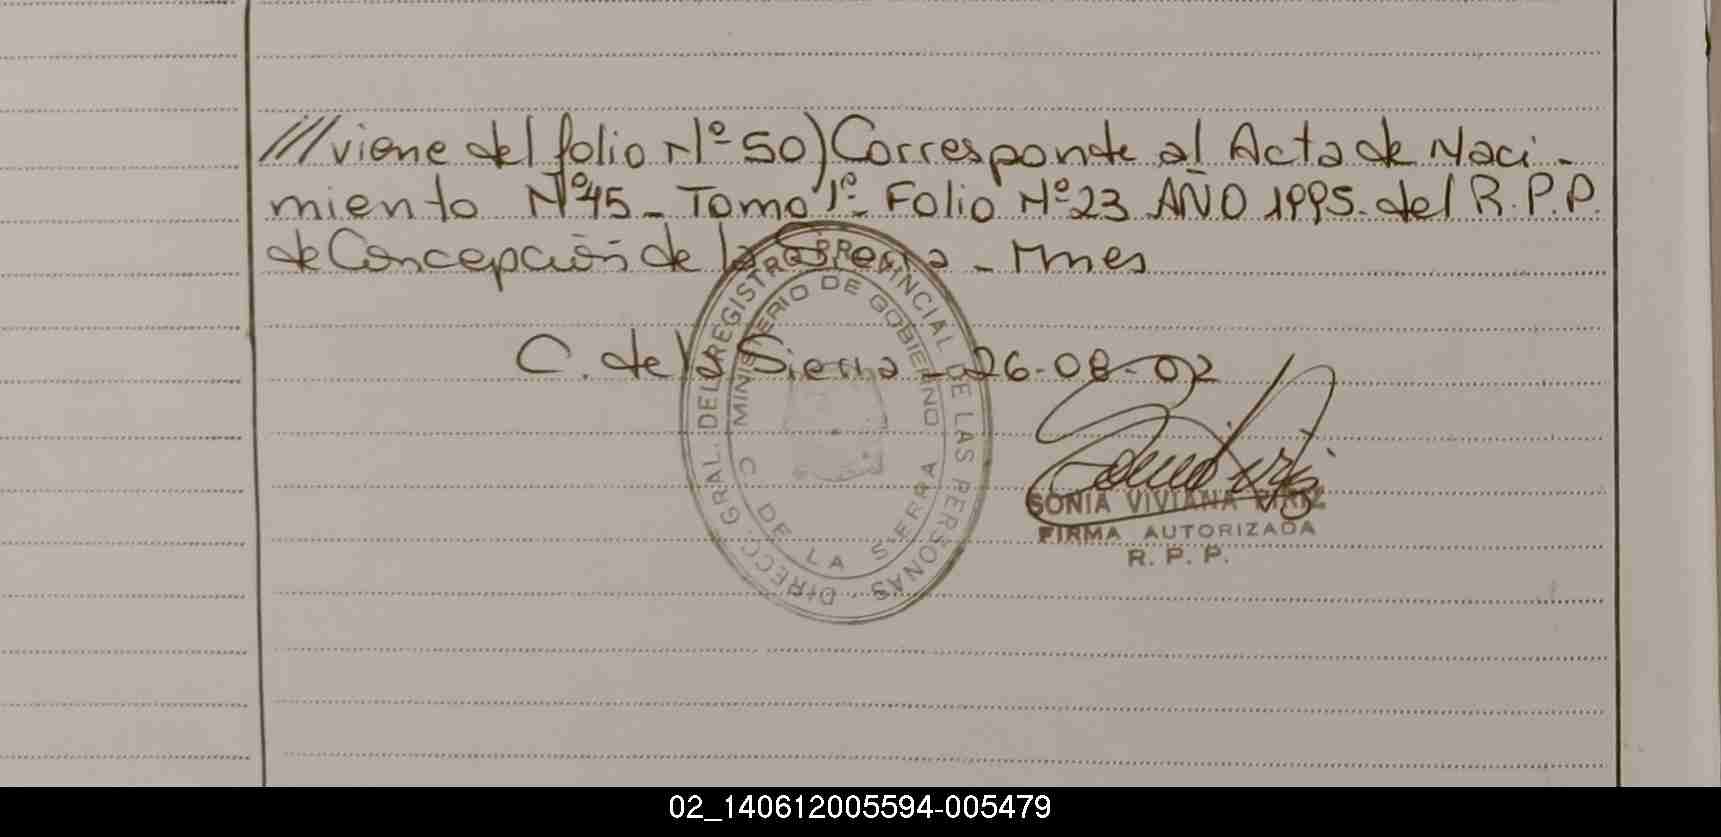 ///viene del folio Nº 50) Corresponde al Acta de Naci-
miento Nº 45 - Tomo 1º - Folio Nº 23 AÑO 1995. del R.P.P.
de Concepción de la Sierra - Mnes
C. de la Sierra - 26-08-02
DIRECC. GRAL. DEL REGISTRO PROVINCIAL DE LAS PERSONAS.
MINISTERIO DE GOBIERNO
C DE LA SIERRA
SONIA VIVIANA PIRIZ
FIRMA AUTORIZADA
R. P. P.
02_140612005594-005479